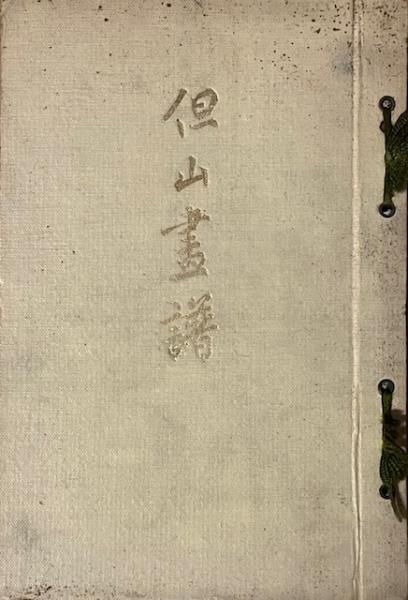 但山畫譜